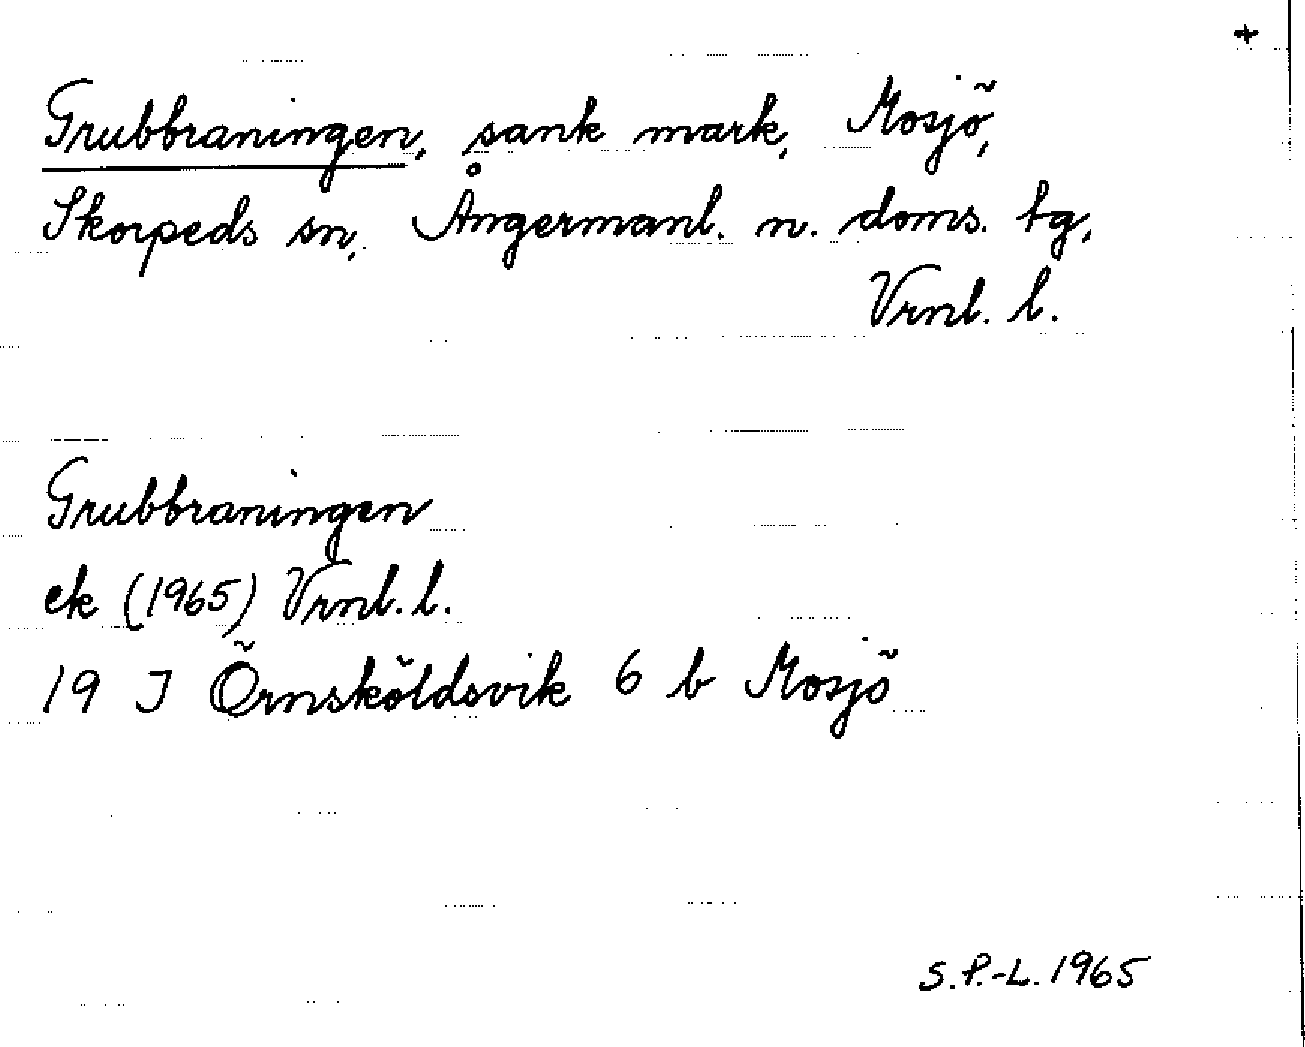 +
Grubbraningen, sank mark, Mosjö,
Skorpeds sn, Ångermanl. n. doms. tg,
Vrnl. l.
Grubbraningen
ek (1965) Vrnl. l.
19 J Örnsköldsvik 6 b Mosjö
S.P.-L. 1965